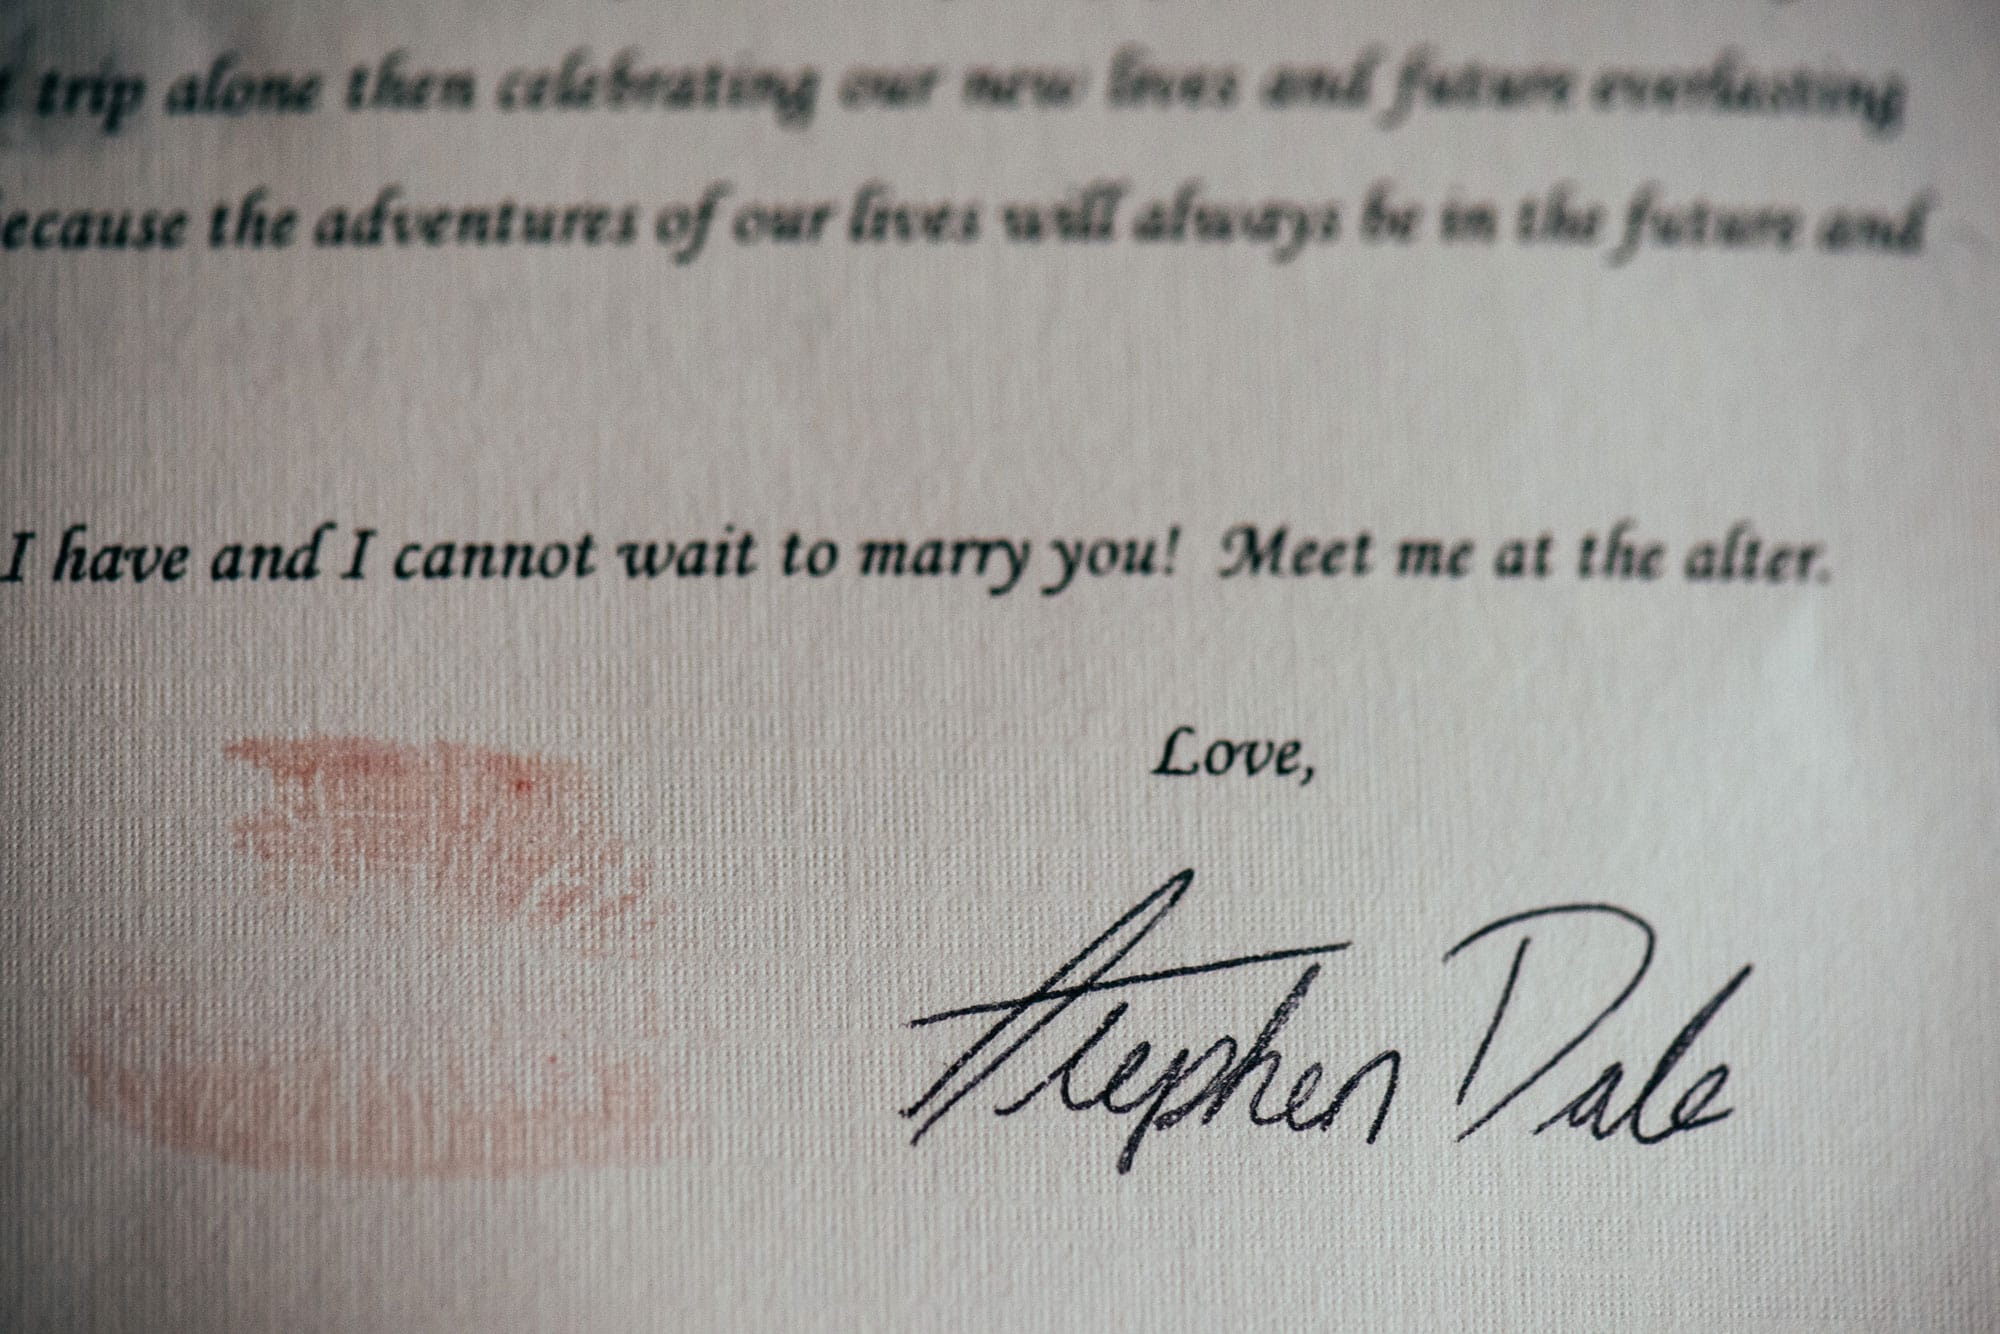 trip alone then celebrating our new lives and future everlasting
because the adventures of our lives will always be in the future and
I have and I cannot wait to marry you! Meet me at the alter.
Love,
Stephen Dale